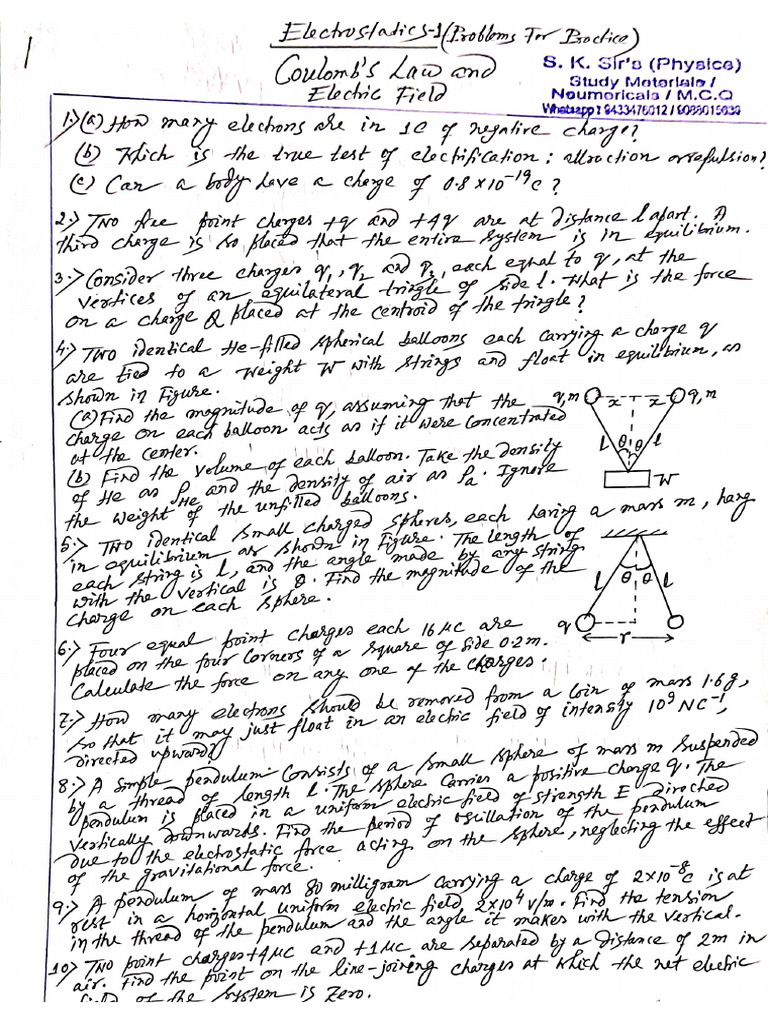 1
Electrostatics-1 (Problems For Practice)
Coulomb's Law and
Electric Field
S. K. Sir's (Physics)
Study Materials /
Noumoricals / M.C.Q
1:> (a) How many electrons are in 1C of negative charge?
(b) Which is the true test of electrification: attraction or repulsion?
(c) Can a body have a charge of 0.8×10⁻¹⁹C?
2:> Two free point charges +q and +4q are at distance l apart. A
third charge is so placed that the entire system is in equilibrium.
3:> Consider three charges q₁, q₂ and q₃, each equal to q, at the
vertices of an equilateral tringle of side l. What is the force
on a charge Q placed at the centroid of the tringle?
4:> Two identical He-filled spherical balloons each carrying a charge q
are tied to a weight W with strings and float in equilibrium, as
shown in Figure.
(a) Find the magnitude of q, assuming that the
charge on each balloon acts as if it were concentrated
at the center.
(b) Find the volume of each balloon. Take the density
of He as ρHe and the density of air as ρa. Ignore
the weight of the unfilled balloons.
q,m x x q,m
l θ θ l
W
5:> Two identical small charged spheres, each having a mass m, hang
in equilibrium as shown in Figure. The length of
each string is l, and the angle made by any string
with the vertical is θ. Find the magnitude of the
charge on each sphere.
l θ θ l
q
r
6:> Four equal point charges each 16 μc are
placed on the four corners of a square of side 0.2m.
Calculate the force on any one of the charges.
7:> How many electrons should be removed from a coin of mass 1.6g,
so that it may just float in an electric field of intensity 10⁹ NC⁻¹,
directed upward?
8:> A simple pendulum consists of a small sphere of mass m suspended
by a thread of length l. The sphere carries a positive charge q. The
pendulum is placed in a uniform electric field of strength E directed
vertically downwards. Find the period of oscillation of the pendulum
due to the electrostatic force acting on the sphere, neglecting the effect
of the gravitational force.
9:> A pendulum of mass 80 milligram carrying a charge of 2×10⁻⁸c is at
rest in a horizontal uniform electric field 2×10⁴ v/m. Find the tension
in the thread of the pendulum and the angle it makes with the vertical.
10:> Two point charges +4μc and +1μc are separated by a distance of 2m in
air. Find the point on the line-joining charges at which the net electric
of the system is zero.